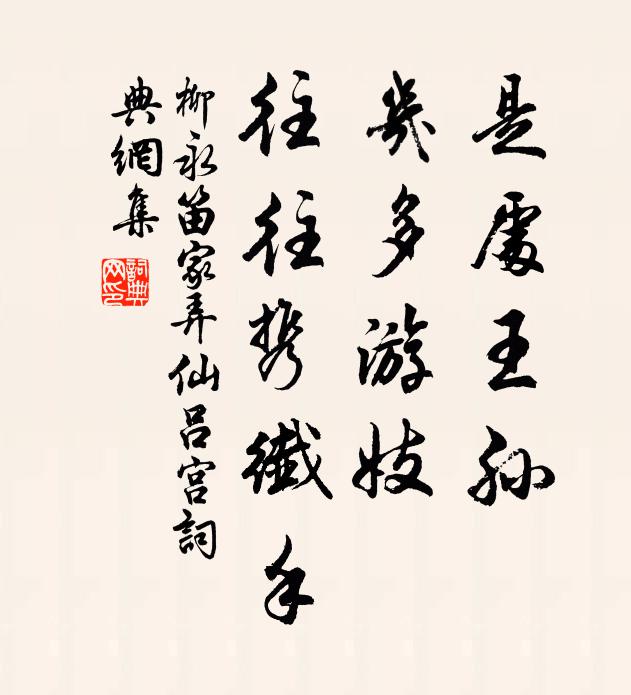 是處王孫
幾多游妓
往往携纖手
柳永笛家弄仙呂宮詞
典網集
詞典網印